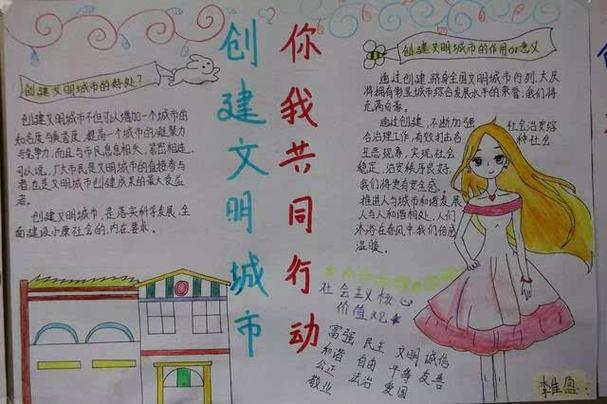 创建文明城市的好处？
创建文明城市不但可以增加一个城市的
知名度与美誉度，提高一个城市的凝聚力
与竞争力，而且与市民息息相关，紧密相连，
可以说，广大市民是文明城市的直接参与
者，也是文明城市创建成果的最大受益
者。
创建文明城市，是落实科学发展、全
面建设小康社会的内在要求。
创建文明城市
你我共同行动
创建文明城市的作用or意义
通过创建，跻身全国文明城市行列，太原
将拥有彰显城市综合发展水平的荣誉，我们将
充满自豪。
通过创建，不断加强社会治安综
合治理工作，有效打击各种社会
丑恶现象，实现社会
稳定，治安秩序良好，
我们将更有安全感。
推进人与城市和谐发展，
人与人和谐相处，人们
沐浴在春风中，我们倍感
温暖。
社会主义核心
价值观
富强 民主 文明 诚信
和谐 自由 平等 友善
公正 法治 爱国
敬业